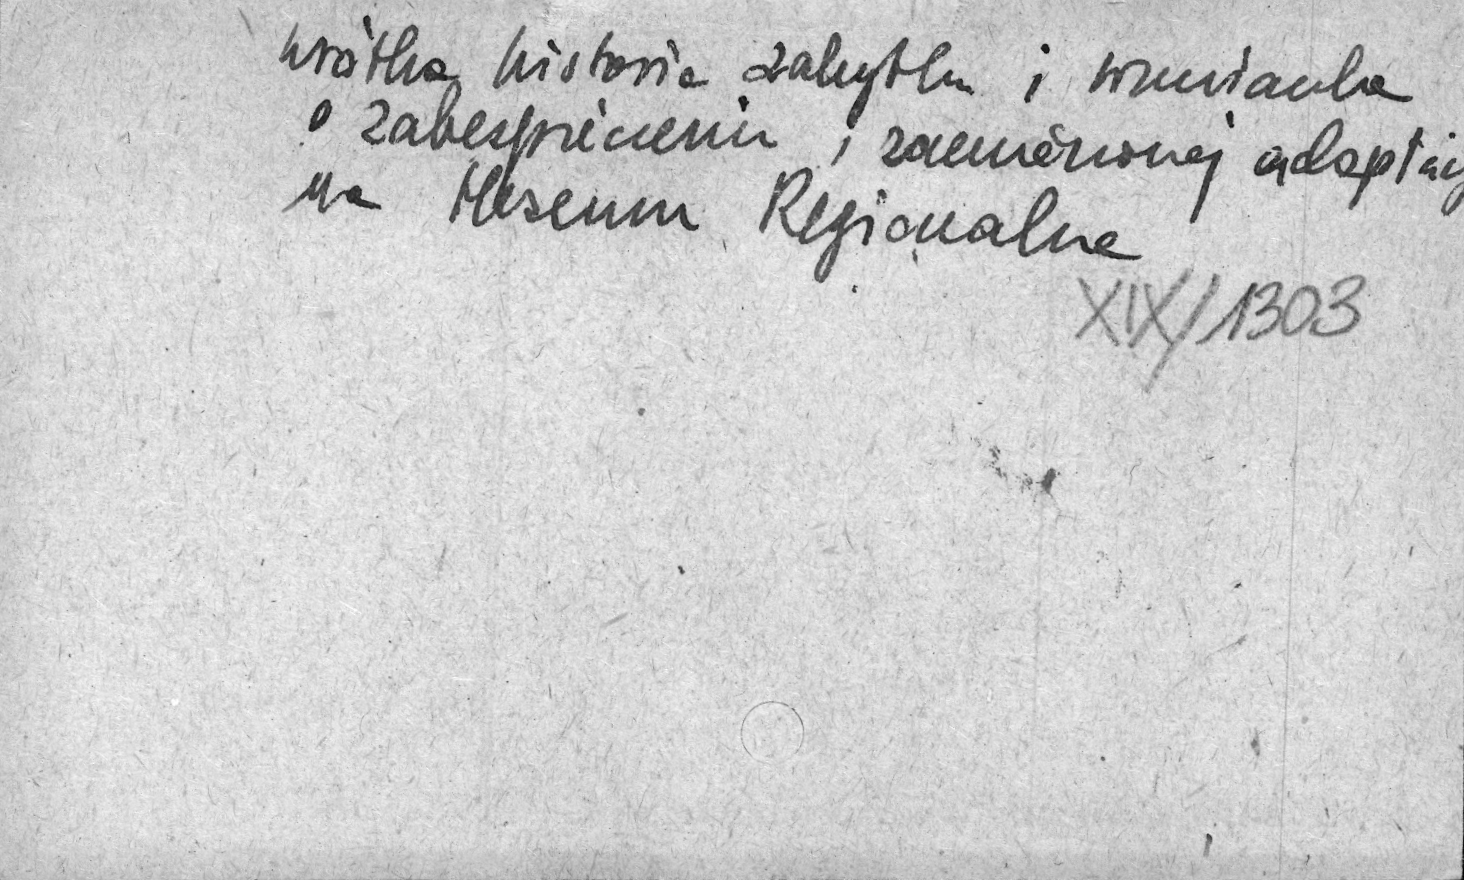 krótka historia zabytku i wzmianka
o zabezpieczeniu i zamierzonej adaptacji
na Muzeum Regionalne
XIX/1303